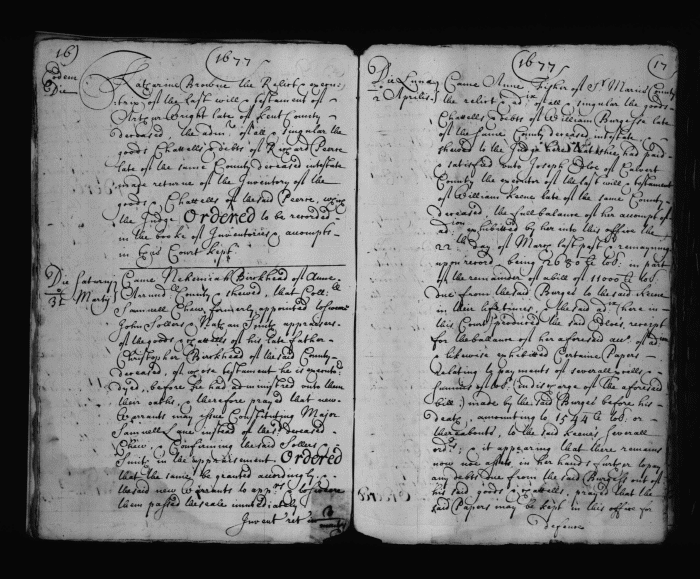 16)
(1677
Eodem
Die
Katharine Browne the Relict & execu:
trix of the last will & testament of
Arthur Wright late of Kent County
deceased, the admrx of all & singular the
goods Chattells & debts of Richard Peerce
late of the same County deceased intestate
made returne of the Inventory of the
goods & Chattells of the said Peerce, wch
the Judge Ordered to be recorded
in the booke of Inventories & accompts
in this Court kept
Die Saturni
31 Martij
Came Nehemiah Birkhead of Anne
Arundll County & shewed, that Coll:
Samuell Chew, formerly appointed to sweare
John Sollers & Smith appraisers
of the goods & Chattells of his late father
Christopher Birkhead of the said County
deceased, of whose testament he is execut:
dyed, before he had administred unto them
their oaths, & therefore prayed that new
Warrants may issue Constituting Major
Samuell Lane instead of the deceased
Chew, & Confirming the said Sollers &
Smith in the appraisement Ordered
that the same be granted accordingly &
the said new Warrants to apprs & to sweare
them passed the seale immediately
Invent ret
(1677
17
Die Lunæ
2 Aprilis
Came Anne Fisher of St Maries County
the relict & ad of all & singular the goods
Chattells & debts of William Burges late
of the same County deceased intestate &
shewed to the Judge that she had paid
& satisfied unto Joseph of Calvert
County the executor of the last will & testament
of William Keene late of the same County
deceased, the full ballance of her accompt of
ad exhibited by her into this office the
22th day of March last past & remayning
upon record being 2680 lb tob: in part
of the remainder of a bill of 11000 lb tob
due from the said Burges to the said Keene
in their lifetimes, & the said ad: there in
this Court produced the said receipt
for the ballance of her aforesaid acct of ad
& likewise exhibited Certaine Papers
Relating to payments of severall
summes of tob: (in discharge of the aforesaid
bill) made by the said Burges before his
death, amounting to 1544 lb tob: or
thereabouts, to the said Keene's severall
ordrs: & it appearing that there remains
now noe assets in her hands further to pay
any debts due from the said Burges out of
his said goods & Chattells, prayed that the
said Papers may be kept in this office for
defence